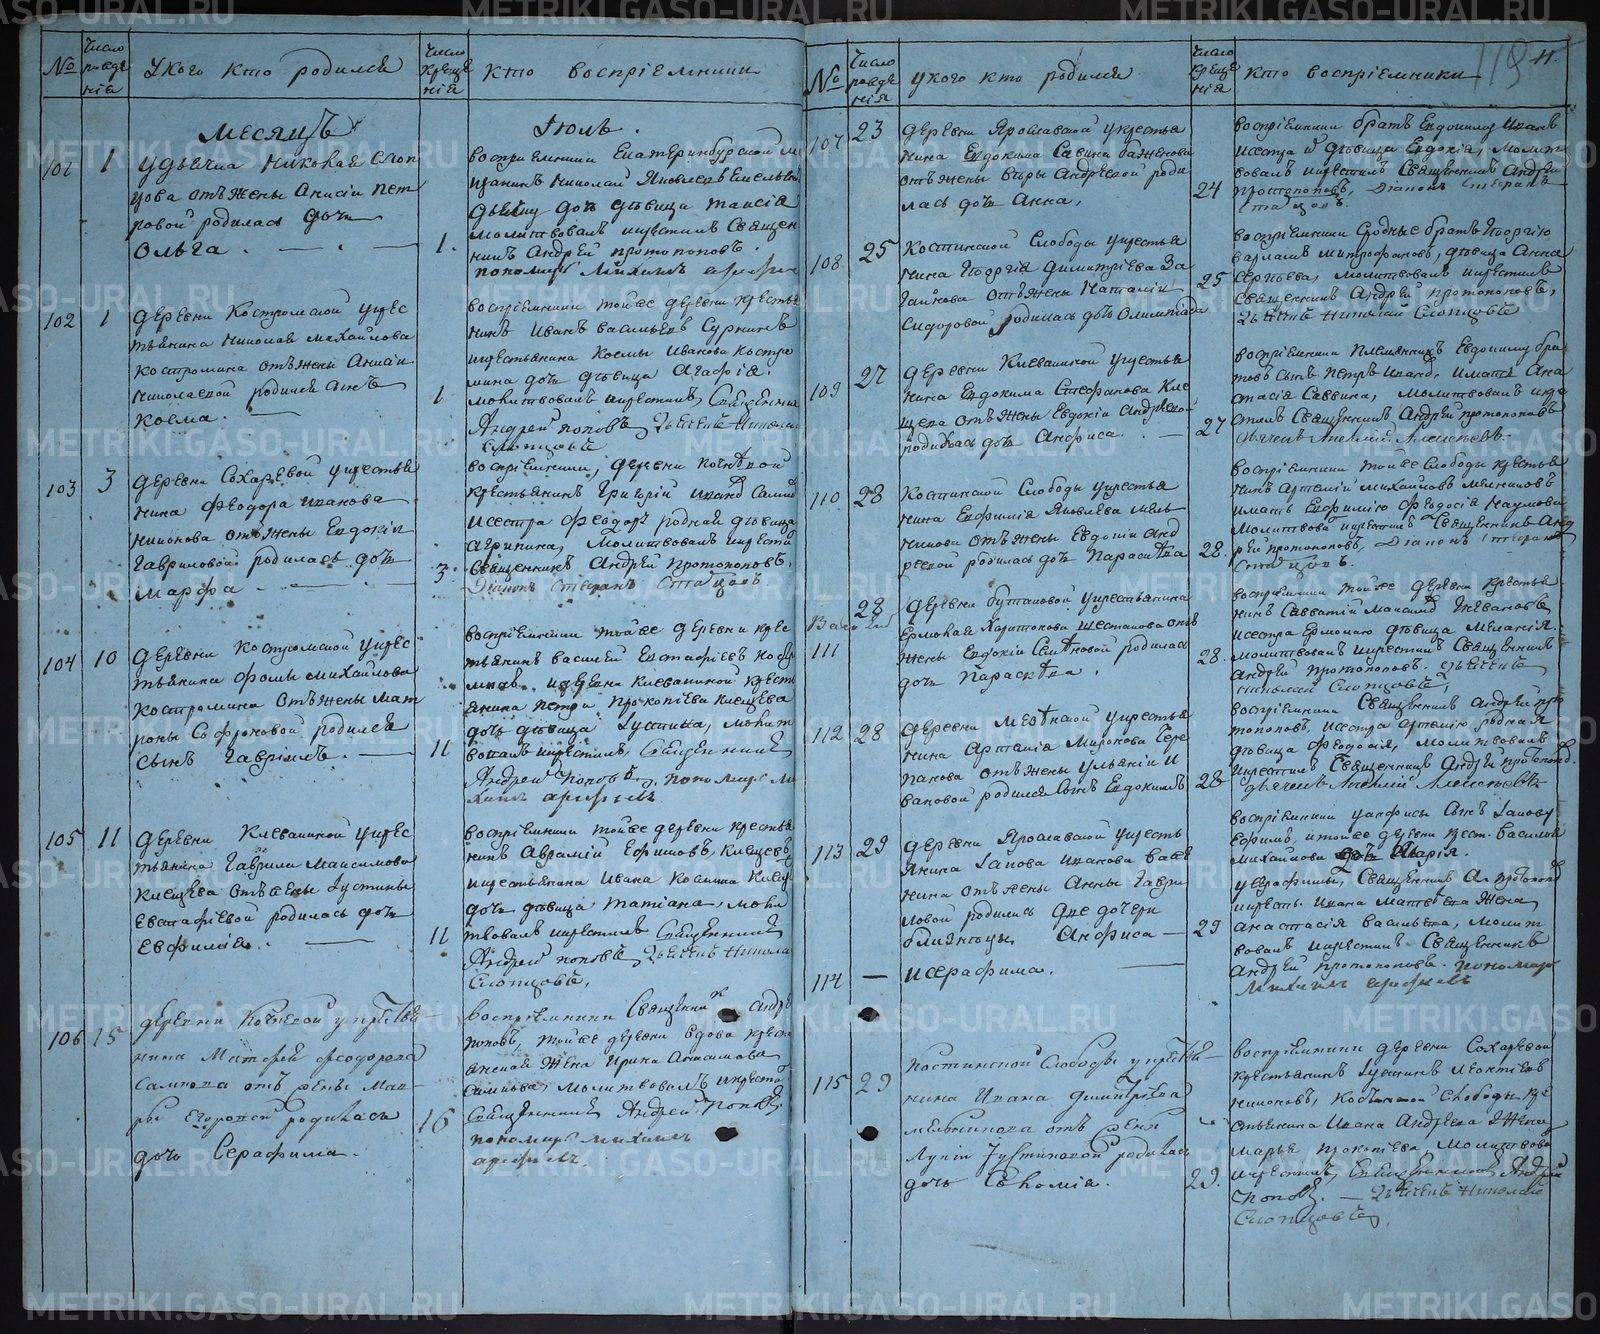 №
Число рожде нія
У кого кто родился
Число креще нія
Кто воспріемники
Месяцъ
Іюль.
101
1
У дьячка Николая Слоп
цова отъ жены Анисіи Пет
ровой родилась дочь
Ольга.
1.
воспріемники Екатеринбургской м
щанинъ Николай Яковлевъ
дочь дѣвица Таисія
молитвовалъ и крестилъ Священ
никъ Андрей Протопоповъ.
пономарь Михаилъ
102
1
деревни Костромской у крес
тьянина Николая Михайлова
Костромина отъ жены Анисіи
Николаевой родился сынъ
Косма.
1
воспріемники той же деревни кресть
нинъ Иванъ Васильевъ Сурнинъ
и крестьянина Космы Иванова Костро
мина дочь дѣвица Агафія.
молитвовалъ и крестилъ Священни
Андрей Поповъ Дьячекъ Никола
Слопцовъ
103
3
деревни Сохаревой у крестья
нина Феодора Иванова
Никонова отъ жены Евдокіи
Гавриловой родилась дочь
Марфа
3.
воспріемники, деревни Кочнѣвой
крестьянинъ Григорій Иванъ
и сестра Феодору родная дѣвица
Агрипина, Молитвовалъ и крести
Священникъ Андрей Протопоповъ.
Діаконъ Стефанъ Стацовъ
104
10
деревни Костромской у крес
тьянина Фомы Михайлова
Костромина отъ жены Мат
роны Софроновой родился
сынъ Гавріилъ.
11
воспріемники той же деревни крес
тьянинъ Василей Евстафіевъ
деревни Клевакиной крест
янина Петра Прокопіева Клещева
дочь дѣвица Іустина, молит
вовалъ и крестилъ, Священникъ
Андрей Поповъ, пономарь Ми
хаилъ
105
11
деревни Клевакиной у крес
тьянина Гаврила Максимова
Клещева отъ жены Іустины
Евстафіевой родилась дочь
Евфимія.
11
воспріемники той же деревни кресть
нинъ Аврамій Ефимовъ Клещевъ
и крестьянина Ивана Козмина Клещ
дочь дѣвица Татіана, моли
твовалъ и крестилъ Священникъ
Андрей Поповъ Дьячекъ Никола
Слопцовъ.
106
15
деревни Кочневой у крестья
нина Матфея Феодорова
отъ жены Мав
ры Егоровой родилась
дочь Серафима.
16
воспріемники Священникъ Андре
Поповъ, той же деревни вдова крест
янская жена Ирина Анисимова
молитвовалъ и крестил
Священникъ Андрей Поповъ.
пономарь Михаилъ
№
Число рожде нія
у кого кто родился
Число креще нія
Кто воспріемники
119
11.
107
23
деревни Ярославской у крестья
нина Евдокима Савина Баженова
отъ жены Вѣры Андреевой роди
лась дочь Анна.
24
воспріемники братъ Евдокиму Иванъ
и сестра дѣвица Евдокія, Молит
вовалъ и крестилъ Священникъ Андрей
Протопоповъ, Діаконъ Стефанъ
Стацовъ.
108
25
Костинской Слободы у крестья
нина Георгія Димитріева За
гайнова отъ жены Наталіи
Сидоровой родилась дочь Олимпіада
25
воспріемники Сродные братъ Георгію
Варламъ Митрофановъ, дѣвица Анна
Сергѣева, молитвовалъ и крестилъ
Священникъ Андрей Протопоповъ,
Дьячекъ Николай Слопцовъ
109
27
деревни Клевакиной у крестья
нина Евдокима Стефанова Кле
щева отъ жены Евдокіи Андреево
родилась дочь Анфиса
27
воспріемники Племянникъ Евдокиму бра
товъ сынъ Петръ Иванъ. и мать Ана
стасія Саввина, молитвовалъ и кре
стилъ Священникъ Андрей Протопоповъ
дьячекъ Алексѣевъ
110
28
Костинской Слободы у крестья
нина Евфимія Яковлева Мель
никова отъ жены Евдокіи Анд
реевой родилась дочь Параскѣва
28.
воспріемники той же Слободы кресть
нинъ Артемій Михайловъ Мельниковъ
и мать Евфимію Феодосія Наумова
Молитвовалъ и крестилъ Священникъ Анд
рей Протопоповъ, Діаконъ Стефанъ
Стацовъ.
111
28
деревни Бутаковой у крестьянина
Ермолая Харитонова Шестакова отъ
жены Евдокіи Семѣновой родилась
дочь Параскѣва.
28.
воспріемники той же деревни кресть
нинъ Савватій Максимъ
и сестра Ермолаю дѣвица Меланія.
молитвовалъ и крестилъ Священникъ
Андрей Протопоповъ. Дьячекъ
Николай Слопцовъ,
112
28
деревни у крестья
нина Артемія Миронова Чере
панова отъ жены Ульяніи И
вановой родился сынъ Евдокимъ
28
воспріемники Священникъ Андрей Про
топоповъ, и сестра Артемію родная
дѣвица Феодосія, молитвовалъ
и крестилъ Священникъ Андрей Протопоповъ.
дьячекъ Алексѣевъ
113
29
деревни Ярославской у кресть
янина Іакова Иванова Баже
нина отъ жены Анны Гаври
ловой родились две дочери
близнецы, Анфиса
29
114
—
и Серафима.
воспріемники у Анфисы сынъ Іакову
Ефимъ и той же деревни крест. Василья
Михайлова дочь Марія.
у Серафимы, Священникъ А. Протопоповъ
и крестъ. Ивана Матвѣева жена
Анастасія Васильева, молит
вовалъ и крестилъ Священникъ
Андрей Протопоповъ. пономарь
Михаилъ
115
29
Костинской Слободы у крестья
нина Ивана Димитріева
Мельникова отъ жены
Лукіи Іустиновой родилась
дочь Соломія.
29.
воспріемники деревни Сохаревой
крестьянинъ Іустинъ Леонтіевъ
Никоновъ, Костинской Слободы кре
стьянина Ивана Андреева жена
Марья Прокопіева, Молитвовал
и крестилъ, Священникъ Андрей
Поповъ. — Дьячекъ Николай
Слопцовъ.
METRIKI.GASO-URAL.RU